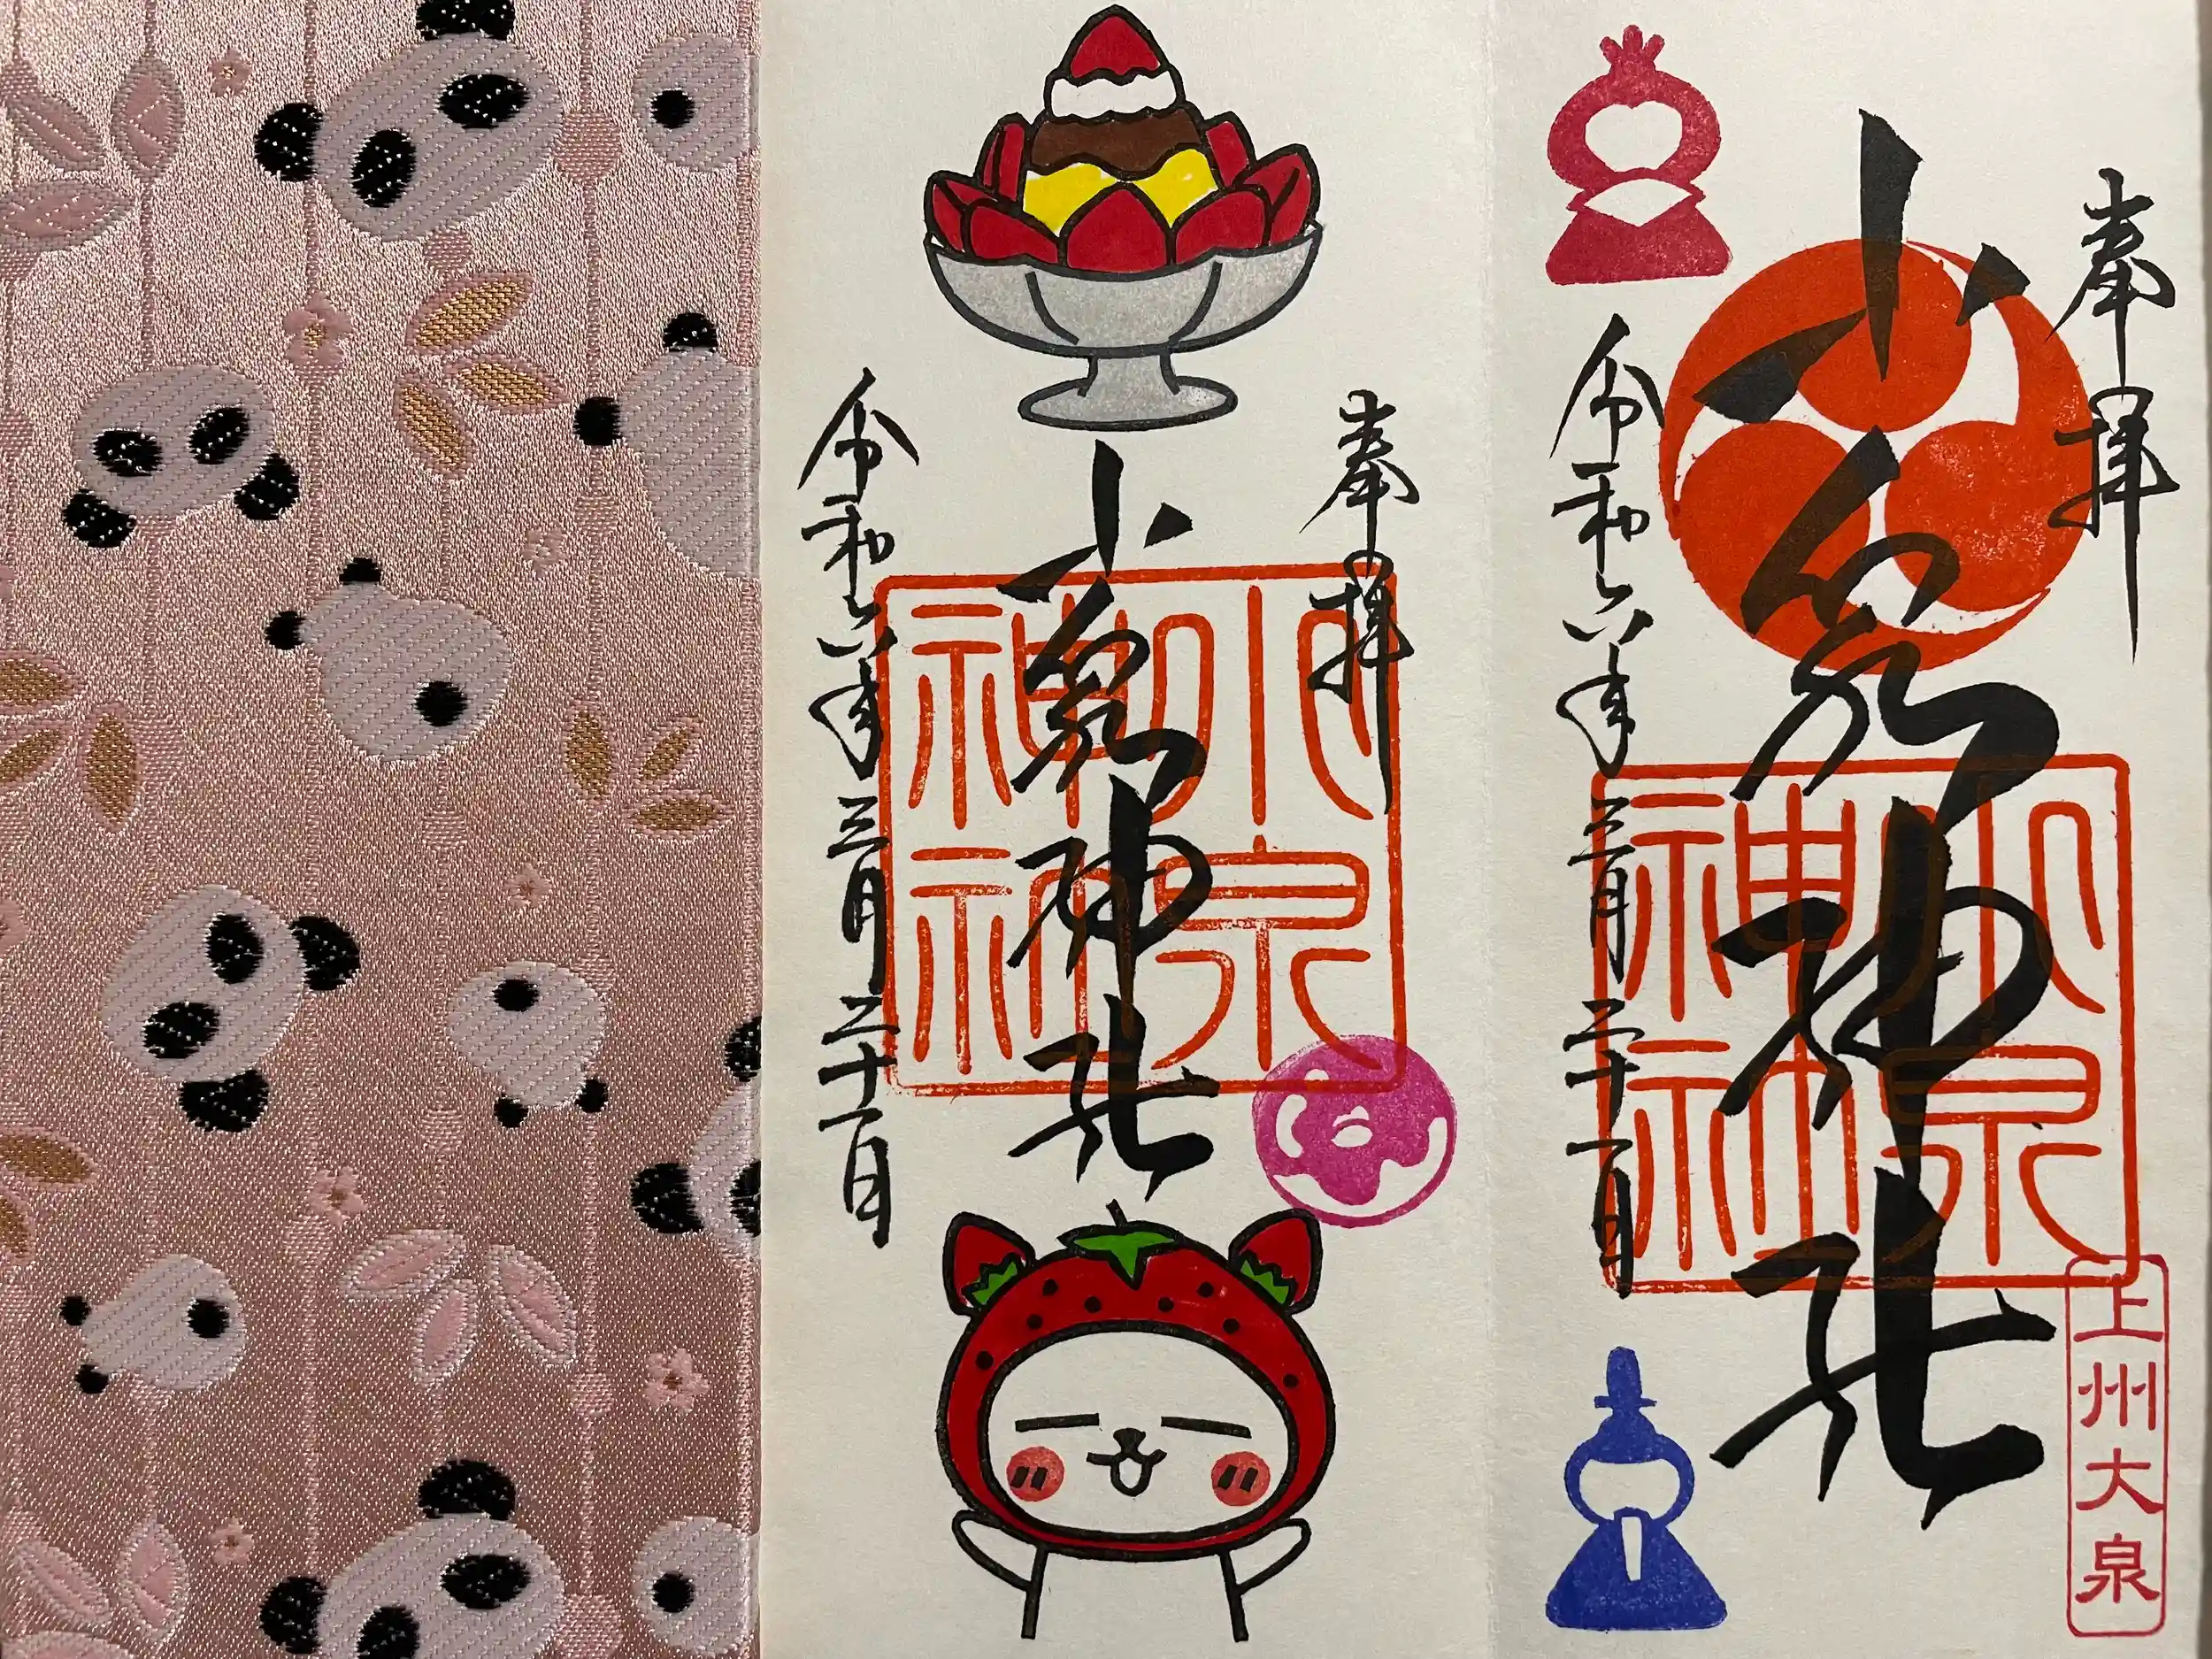 奉拝
小泉神社
令和六年三月二十一日
小泉
神社
上州大泉
奉拝
小泉神社
令和六年三月二十一日
小泉
神社